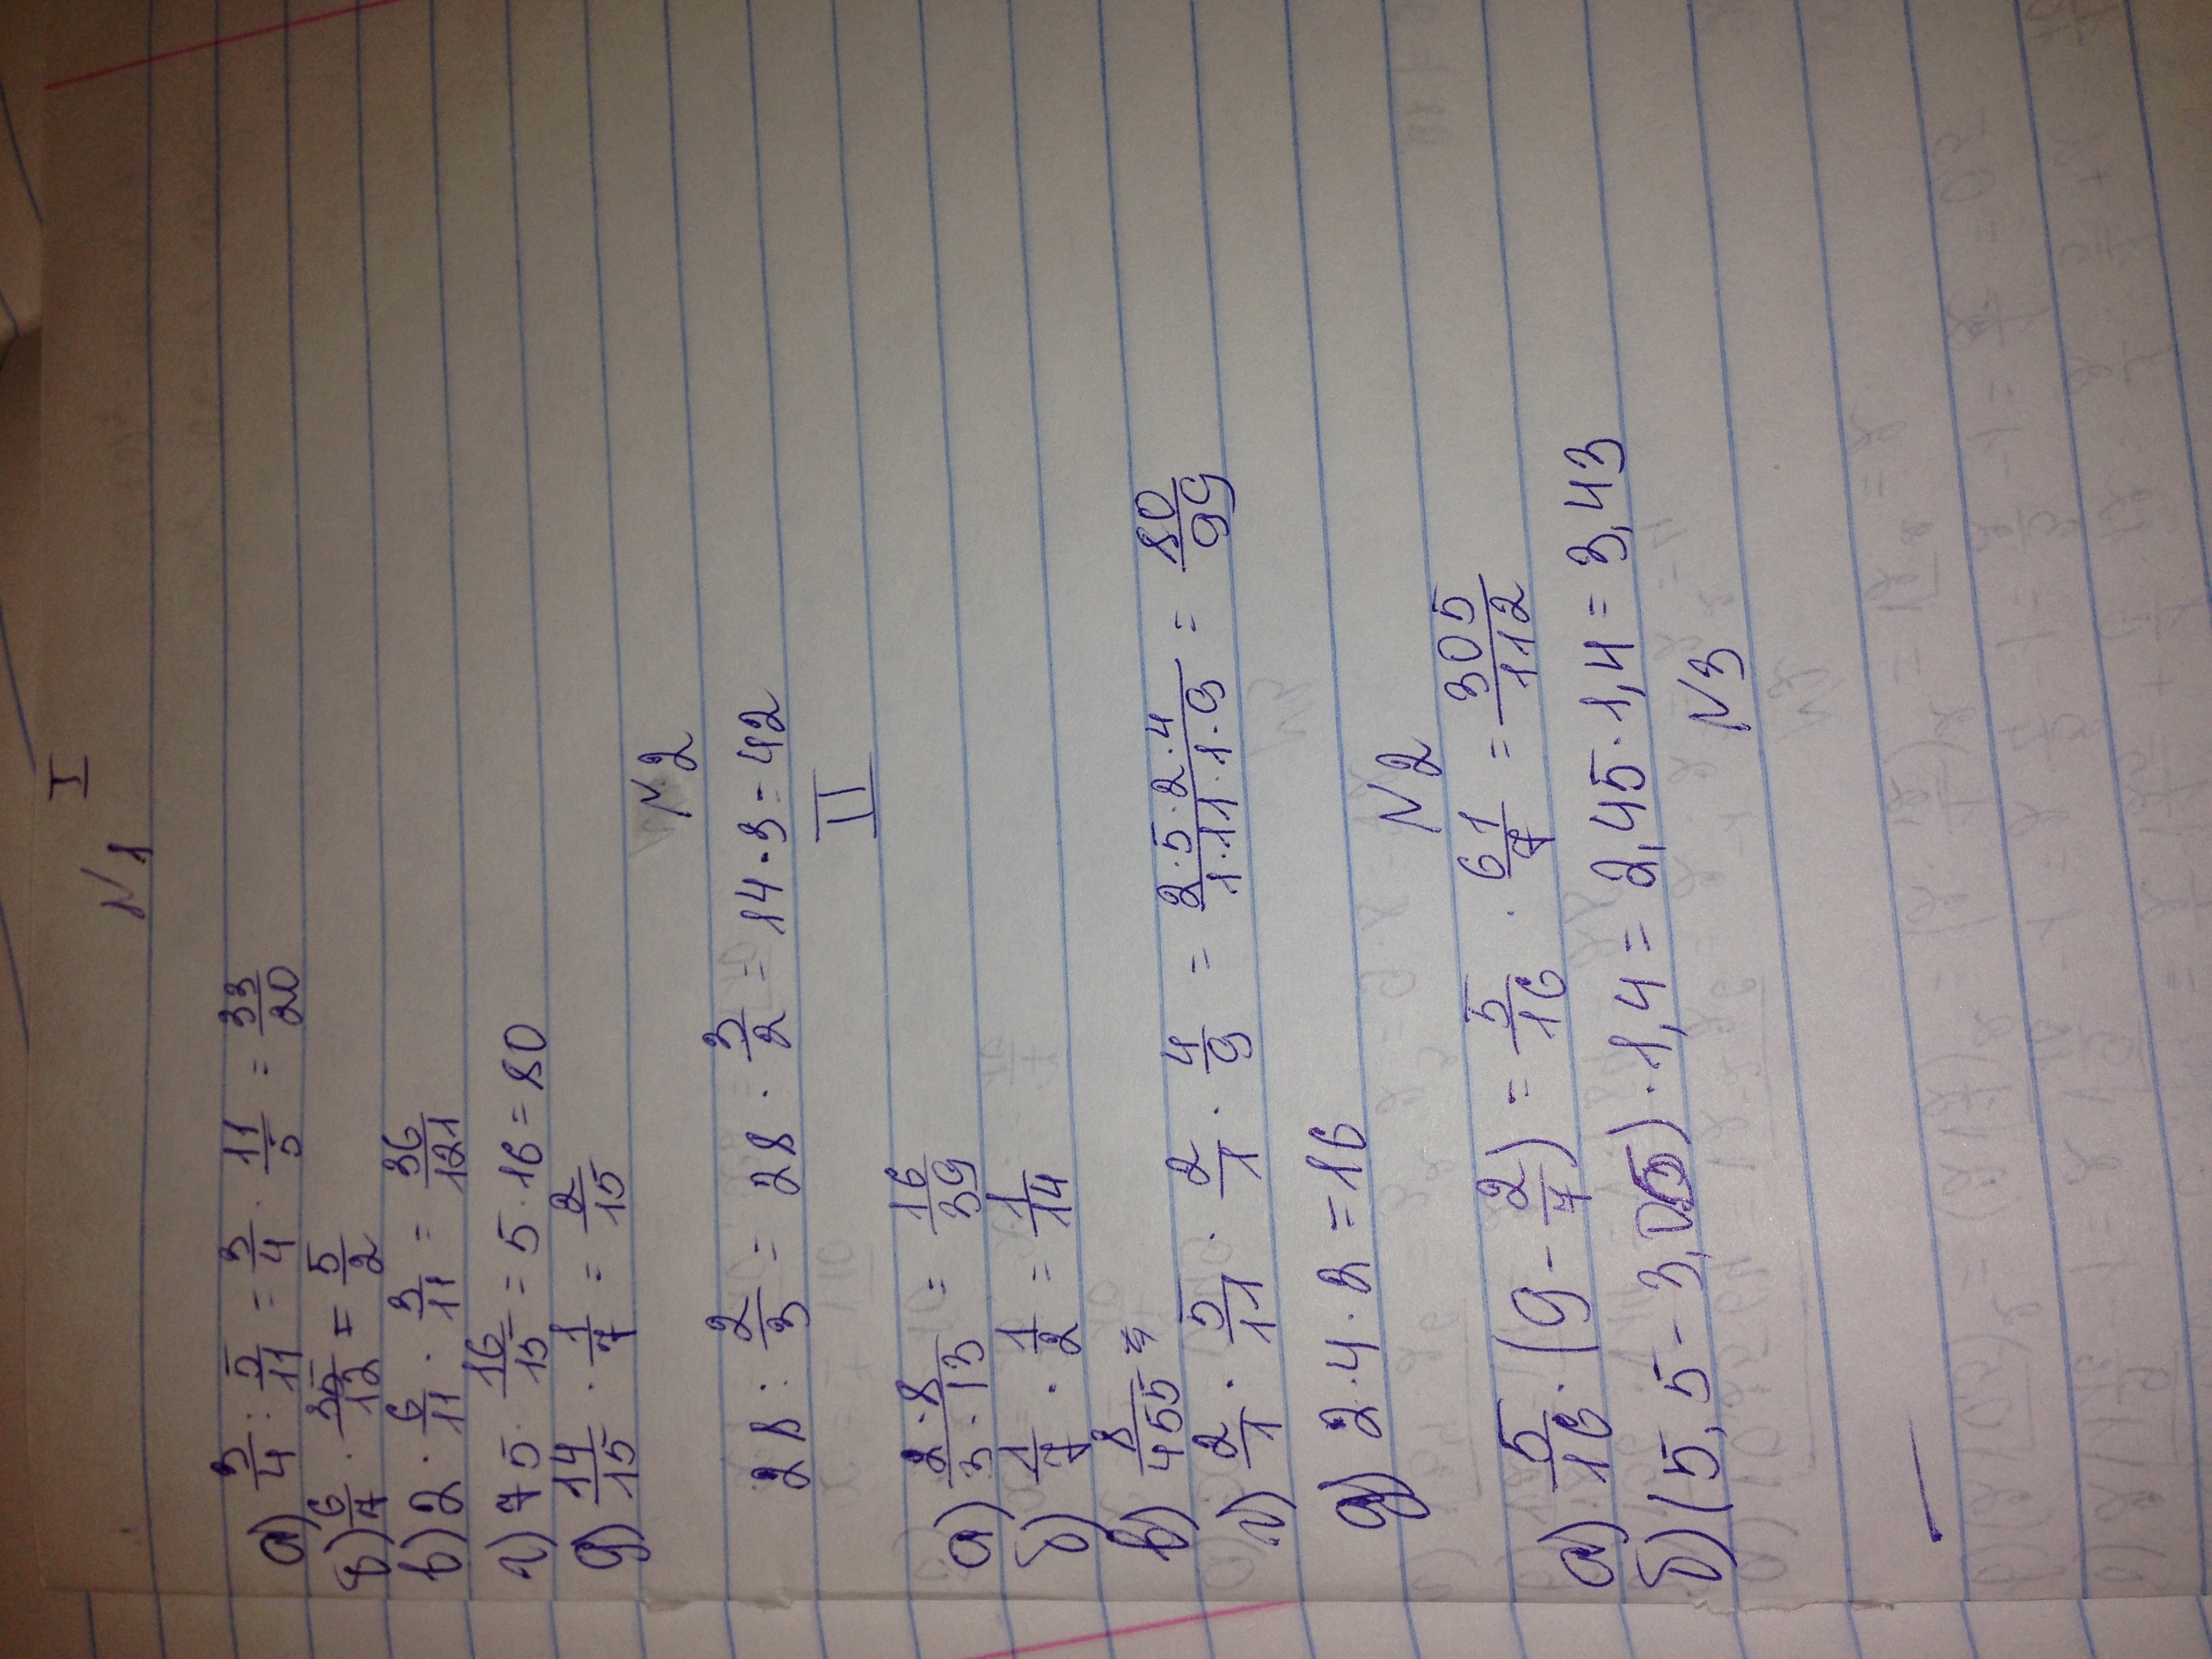 I
N 1
а) 3/4 : 5/11 = 3/4 · 11/5 = 33/20
б) 6/7 · 35/12 = 5/2
в) 2 · 6/11 · 3/11 = 36/121
г) 75 · 16/15 = 5 · 16 = 80
д) 14/15 · 1/7 = 2/15
N 2
28 : 2/3 = 28 · 3/2 = 14 · 3 = 42
II
а) 2·8/3·13 = 16/39
б) 1/7 · 1/2 = 1/14
в) 8/455
г) 2/1 · 5/11 · 2/1 · 4/9 = 2·5·2·4/1·11·1·9 = 80/99
д) 2 · 4 · 2 = 16
N 2
а) 5/16 · (9 - 2/7) = 5/16 · 6 1/7 = 305/112
б) (5,5 - 3,05) · 1,4 = 2,45 · 1,4 = 3,43
N 3